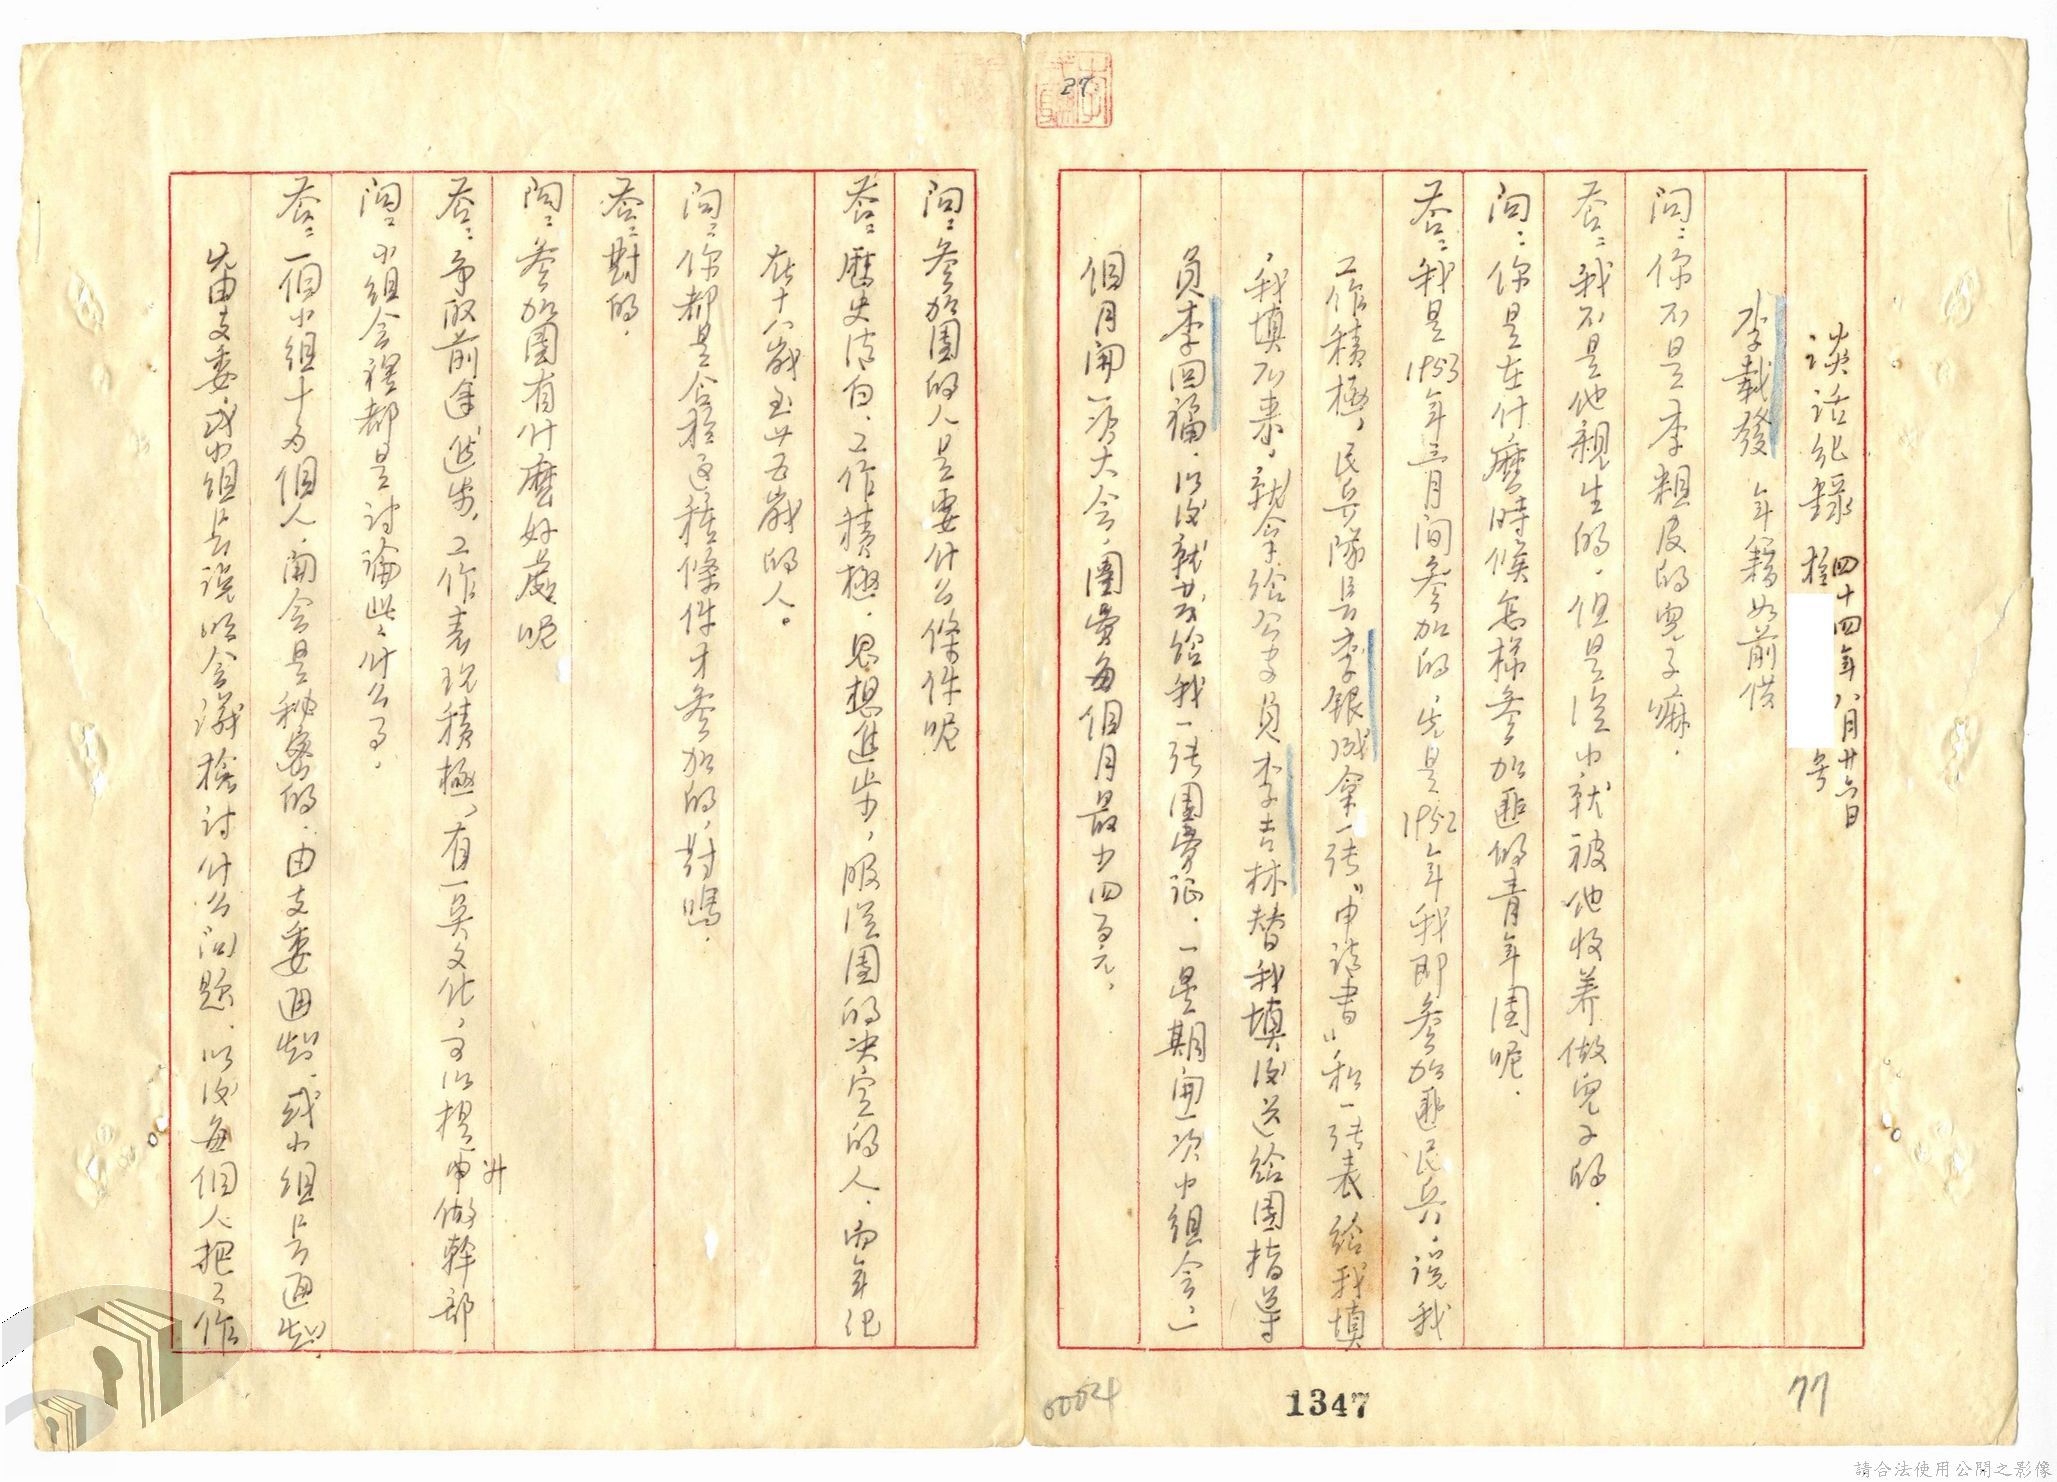 談話紀錄 四十四年八月廿六日
於 　 号
李載發 年籍如前供
問：你不是李粗皮的兒子嘛．
答：我不是他親生的．但是從小就被他收养做兒子的．
問：你是在什麼時候怎樣參加匪的青年团呢．
答：我是1953年三月间參加的，先是1952年我即參加匪民兵，說我
工作積極，民兵隊長李銀成拿一张“申請書”和一张表 給我填
，我填不來，就拿給公安員李吉林替我填，後送給團指導
員李回福．以後就发給我一张團费证．一星期開一次小组会，一
個月開一次大会，團费每個月最少四百元．
問：參加團的人是要什么條件呢
答：歷史清白．工作積極．思想進步，服從團的決定的人．而年纪
在十八歲至廿五歲的人。
問：你都是合於這種條件才參加的，對嗎．
答：對的．
問：參加團有什麼好處呢
答：争取前途進步，工作表现積極，有一点文化，可以提升做幹部
問：小組会裡都是討論些什么了．
答：一個小組十多個人．開会是秘密的．由支委通知．或小組長通知．
先由支委或小组長說明会議檢討什么问题．以後每個人把工作
27
00024
1347
77
請合法使用公開之影像